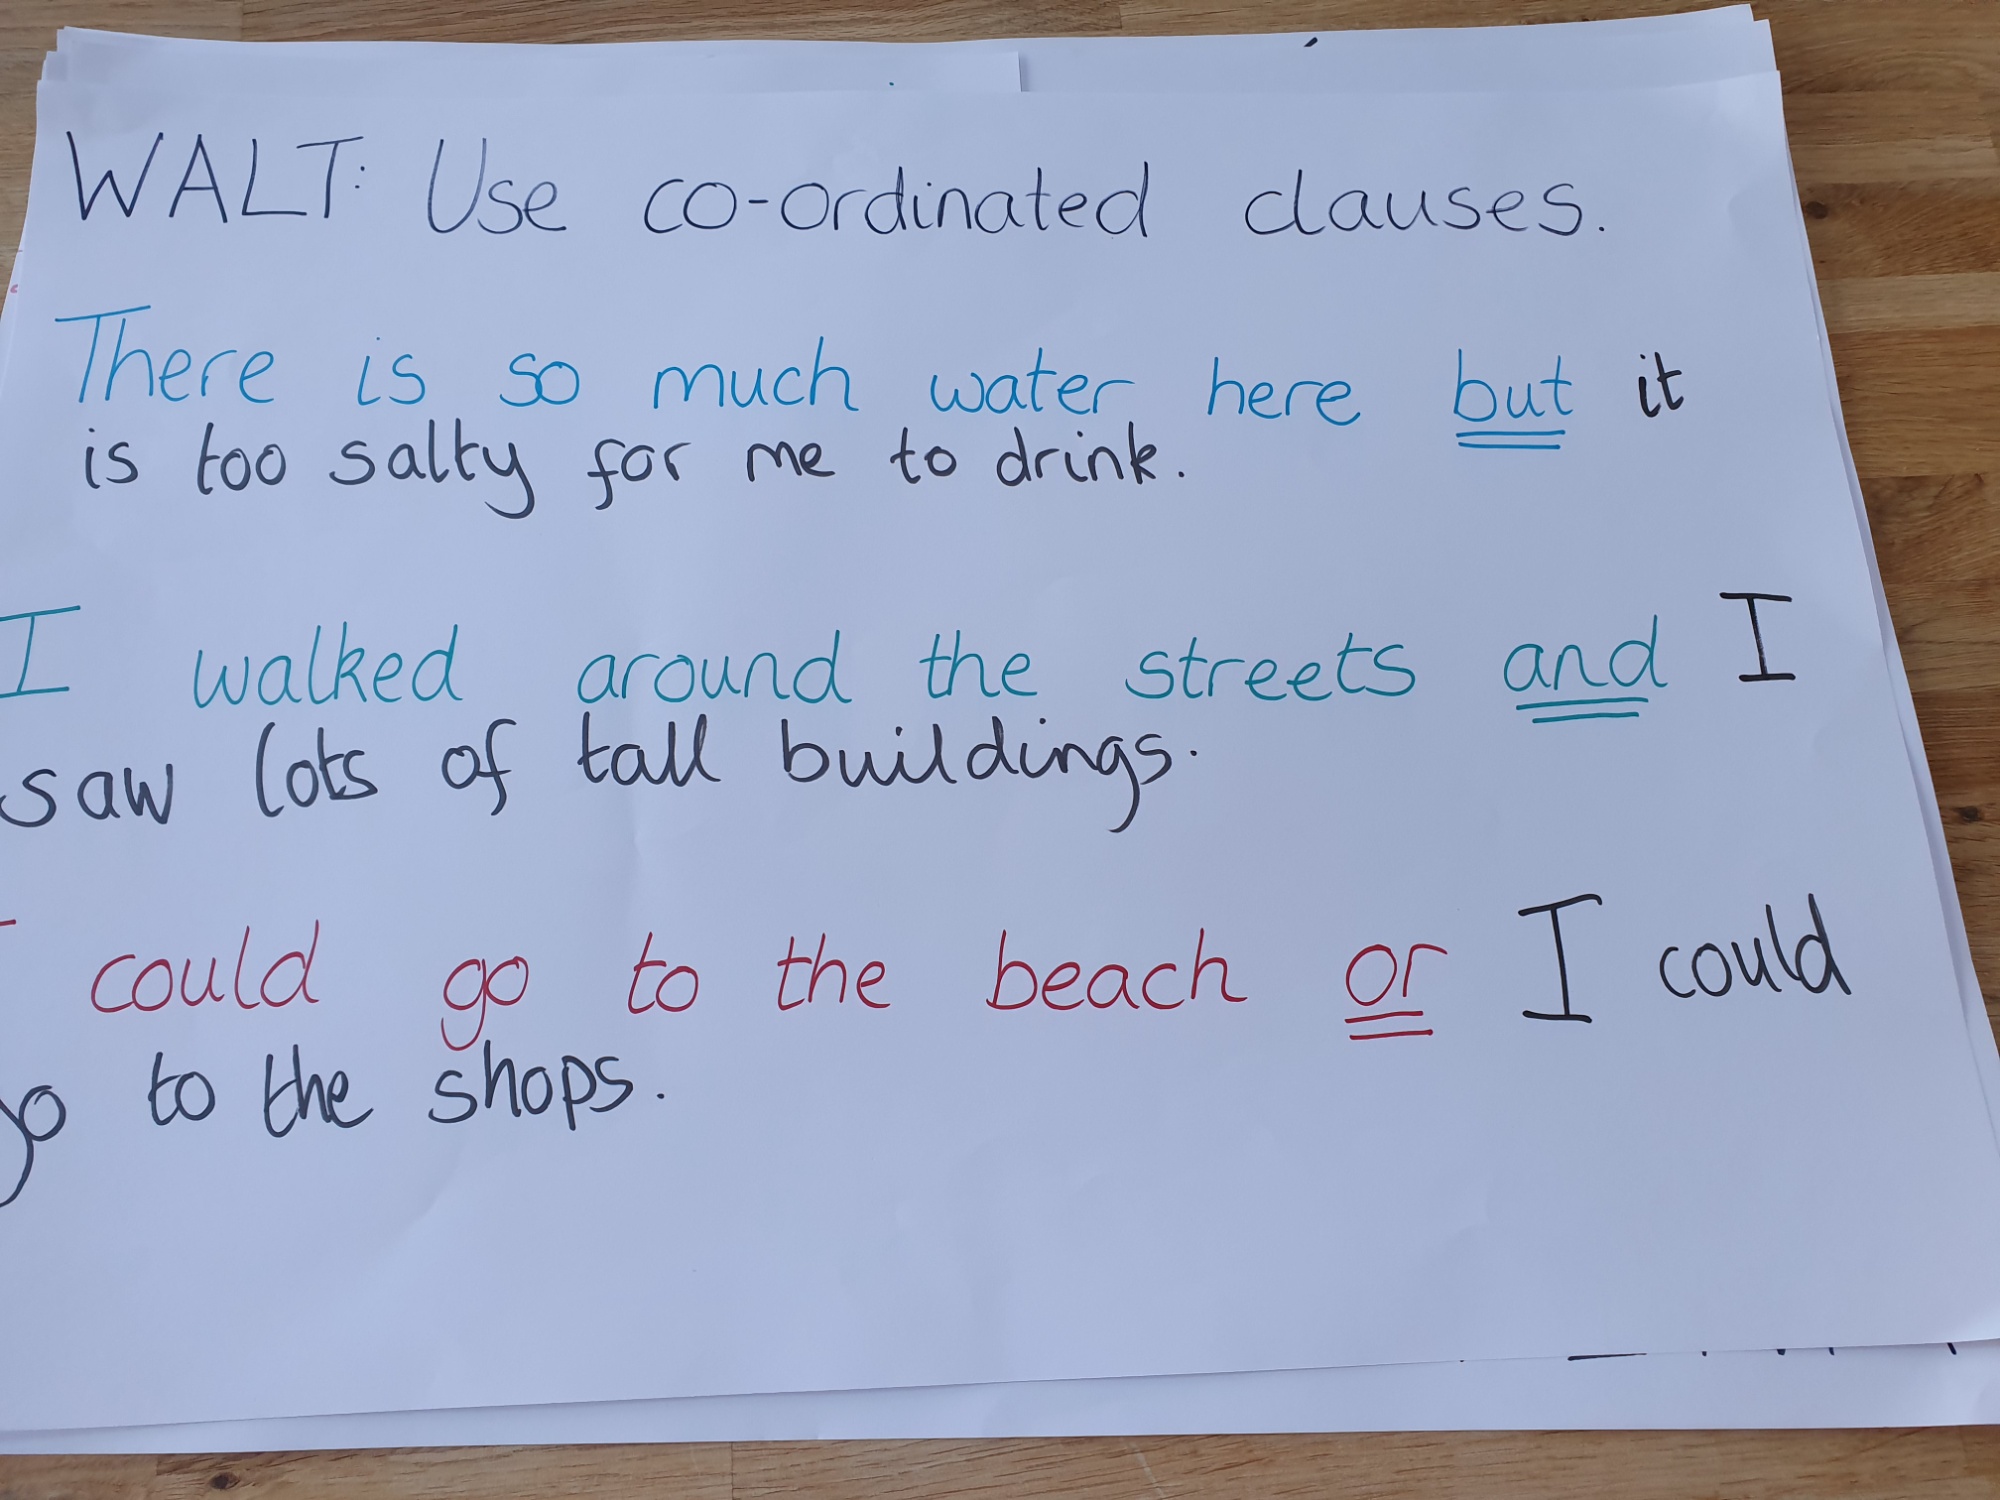 WALT: Use co-ordinated clauses.
There is so much water here but it
is too salty for me to drink.
I walked around the streets and I
saw lots of tall buildings.
could go to the beach or I could
go to the shops.